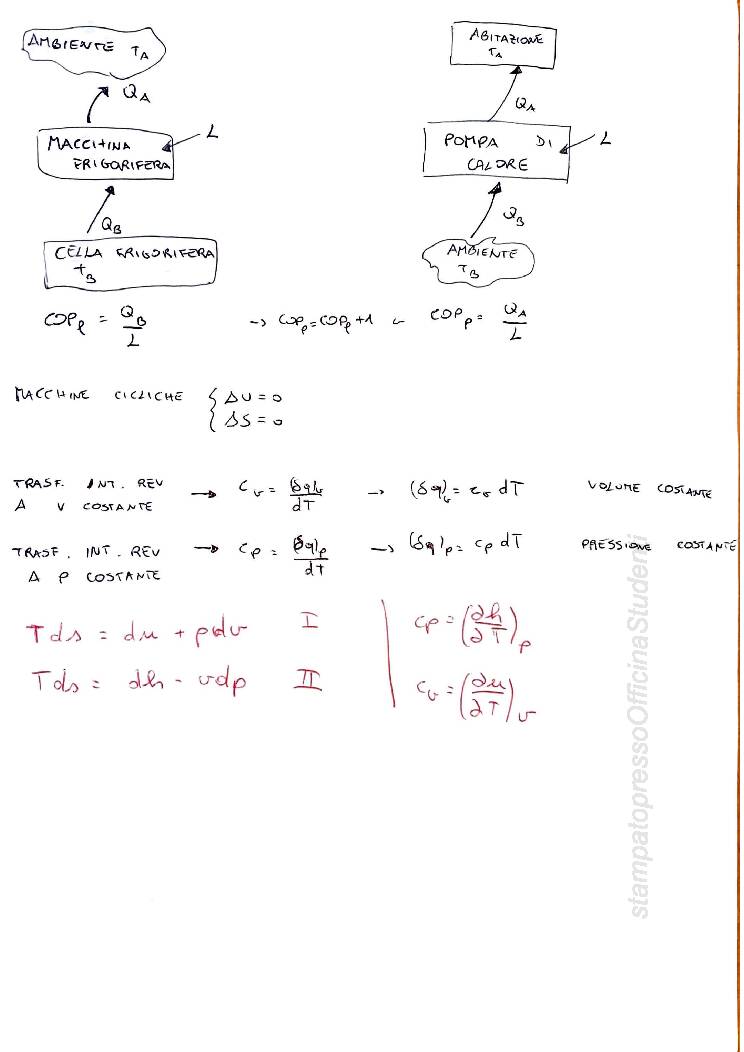 AMBIENTE T_A
Q_A
MACCHINA FRIGORIFERA
L
Q_B
CELLA FRIGORIFERA
T_B
COP_f = Q_B / L
ABITAZIONE
T_A
Q_A
POMPA DI CALORE
L
Q_B
AMBIENTE
T_B
→ COP_p = COP_f + 1 ← COP_p = Q_A / L
MACCHINE CICLICHE { ΔU = 0
ΔS = 0
TRASF. INT. REV
A V COSTANTE
→ c_v = (δq)_v / dT → (δq)_v = c_v dT VOLUME COSTANTE
TRASF. INT. REV
A P COSTANTE
→ c_p = (δq)_p / dT → (δq)_p = c_p dT PRESSIONE COSTANTE
Tds = du + pdv I
Tds = dh - vdp II
c_p = (∂h/∂T)_p
c_v = (∂u/∂T)_v
stampatopressoOfficinaStudenti